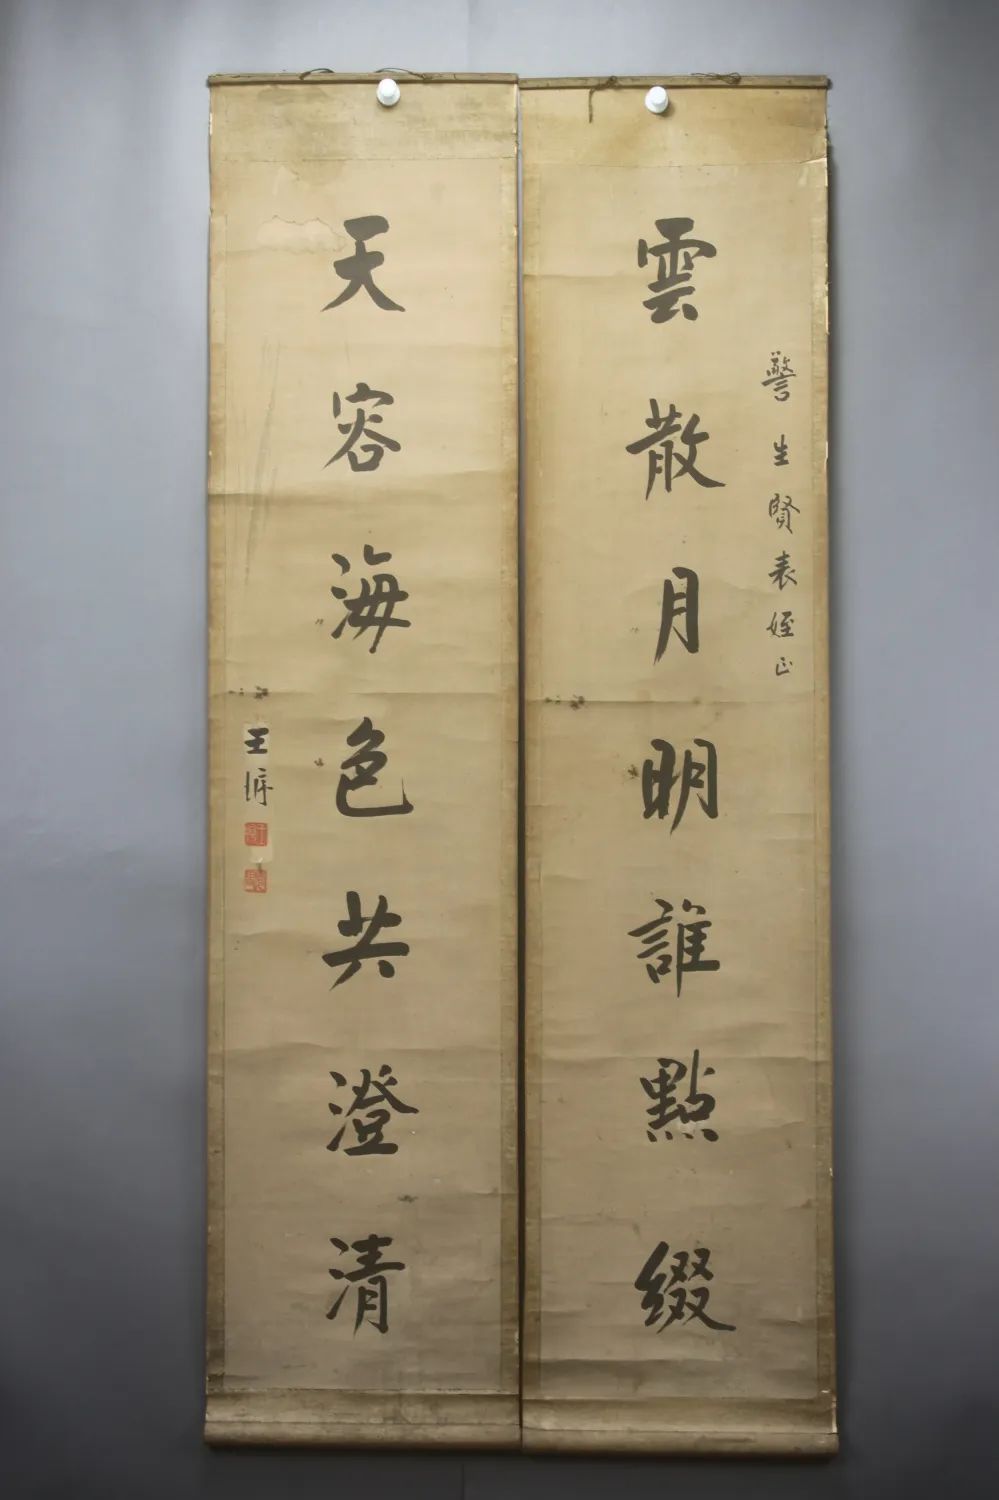 雲散月明誰點綴
警生賢表姪正
天容海色共澄清
王